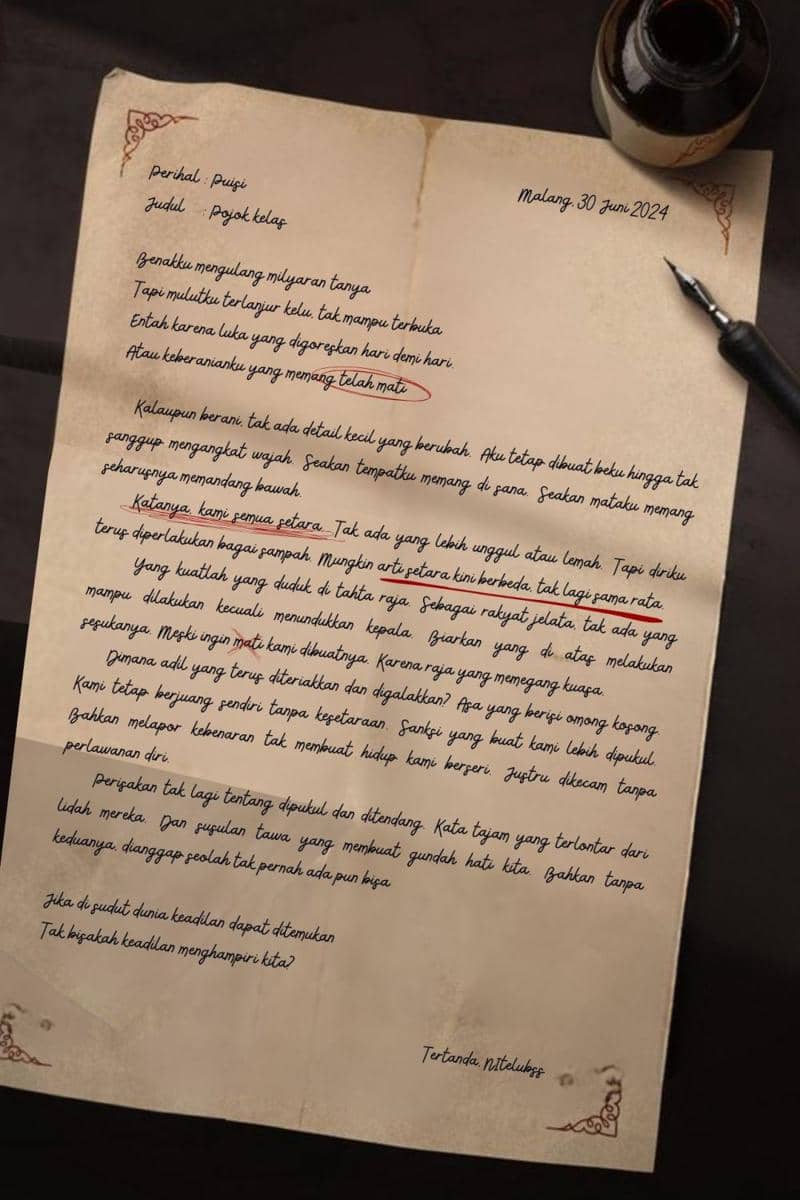 Perihal : Puisi
Malang, 30 Juni 2024
Judul : Pojok kelas
Benakku mengulang milyaran tanya
Tapi mulutku terlanjur kelu, tak mampu terbuka
Entah karena luka yang digoreskan hari demi hari.
Atau keberanianku yang memang telah mati
Kalaupun berani, tak ada detail kecil yang berubah. Aku tetap dibuat beku hingga tak
sanggup mengangkat wajah. Seakan tempatku memang di sana. Seakan mataku memang
seharusnya memandang bawah.
Katanya, kami semua setara. Tak ada yang lebih unggul atau lemah. Tapi diriku
terus diperlakukan bagai sampah. Mungkin arti setara kini berbeda, tak lagi sama rata.
Yang kuatlah yang duduk di tahta raja. Sebagai rakyat jelata, tak ada yang
mampu dilakukan kecuali menundukkan kepala. Biarkan yang di atas melakukan
sesukanya. Meski ingin mati kami dibuatnya. Karena raja yang memegang kuasa.
Dimana adil yang terus diteriakkan dan digalakkan? Asa yang berisi omong kosong.
Kami tetap berjuang sendiri tanpa kesetaraan. Sanksi yang buat kami lebih dipukul.
Bahkan melapor kebenaran tak membuat hidup kami berseri. Justru dikecam tanpa
perlawanan diri.
Perisakan tak lagi tentang dipukul dan ditendang. Kata tajam yang terlontar dari
lidah mereka. Dan susulan tawa yang membuat gundah hati kita. Bahkan tanpa
keduanya, dianggap seolah tak pernah ada pun bisa
Jika di sudut dunia keadilan dapat ditemukan
Tak bisakah keadilan menghampiri kita?
Tertanda, NItelubss